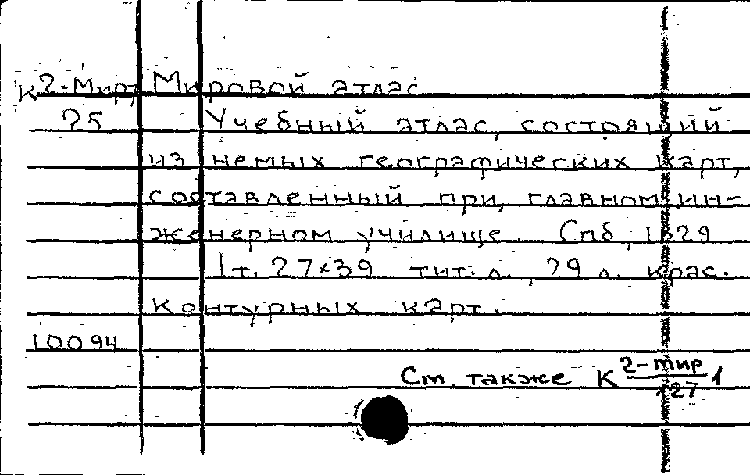 К 2-Мир Мировой атлас
25 Учебный атлас, состоящий
из немых географических карт,
составленный при главном ин-
женерном училище. Спб, 1829
1т. 27×39 тит. л., 29 л. крас.
контурных карт.
10094
См. также К 2-мир
127 1